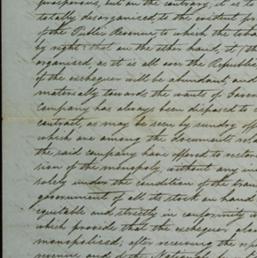 prosperous, but on the contrary, it is to
totally disorganised, to the evident pre
of the Public Revenue to which the toba
by right: that on the other hand, if the
organised, as it is all over the Republic
of the exchequer will be abundant, and
materially towards the wants of Gover
Company has always been disposed to
contract, as may be seen by sundry off
which are among the documents relat
the said company have offered to restor
sion of the monopoly, without any in
solely under the condition of the tran
government of all its stock on hand
equitable and strictly in conformity w
which provide that the exchequer
monopolised, after receiving the